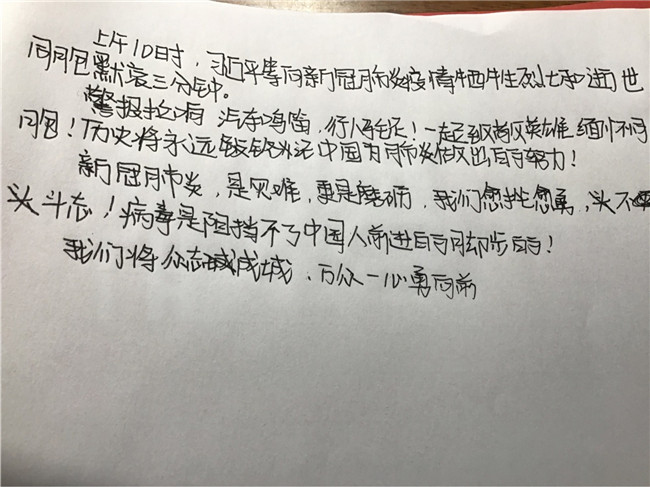 上午10时,习近平等向新冠肺炎疫情牺牲烈士和逝世
同胞默哀三分钟。
警报拉响 汽车鸣笛,行人停!一起致敬英雄 缅怀
同包!历史将永远 中国为肺炎做出的努力!
新冠肺炎,是灾难,更是磨砺,我们愈挫愈勇,头不
头斗志!病毒是阻挡不了中国人前进的却步的!
我们将众志成城,万众一心勇向前